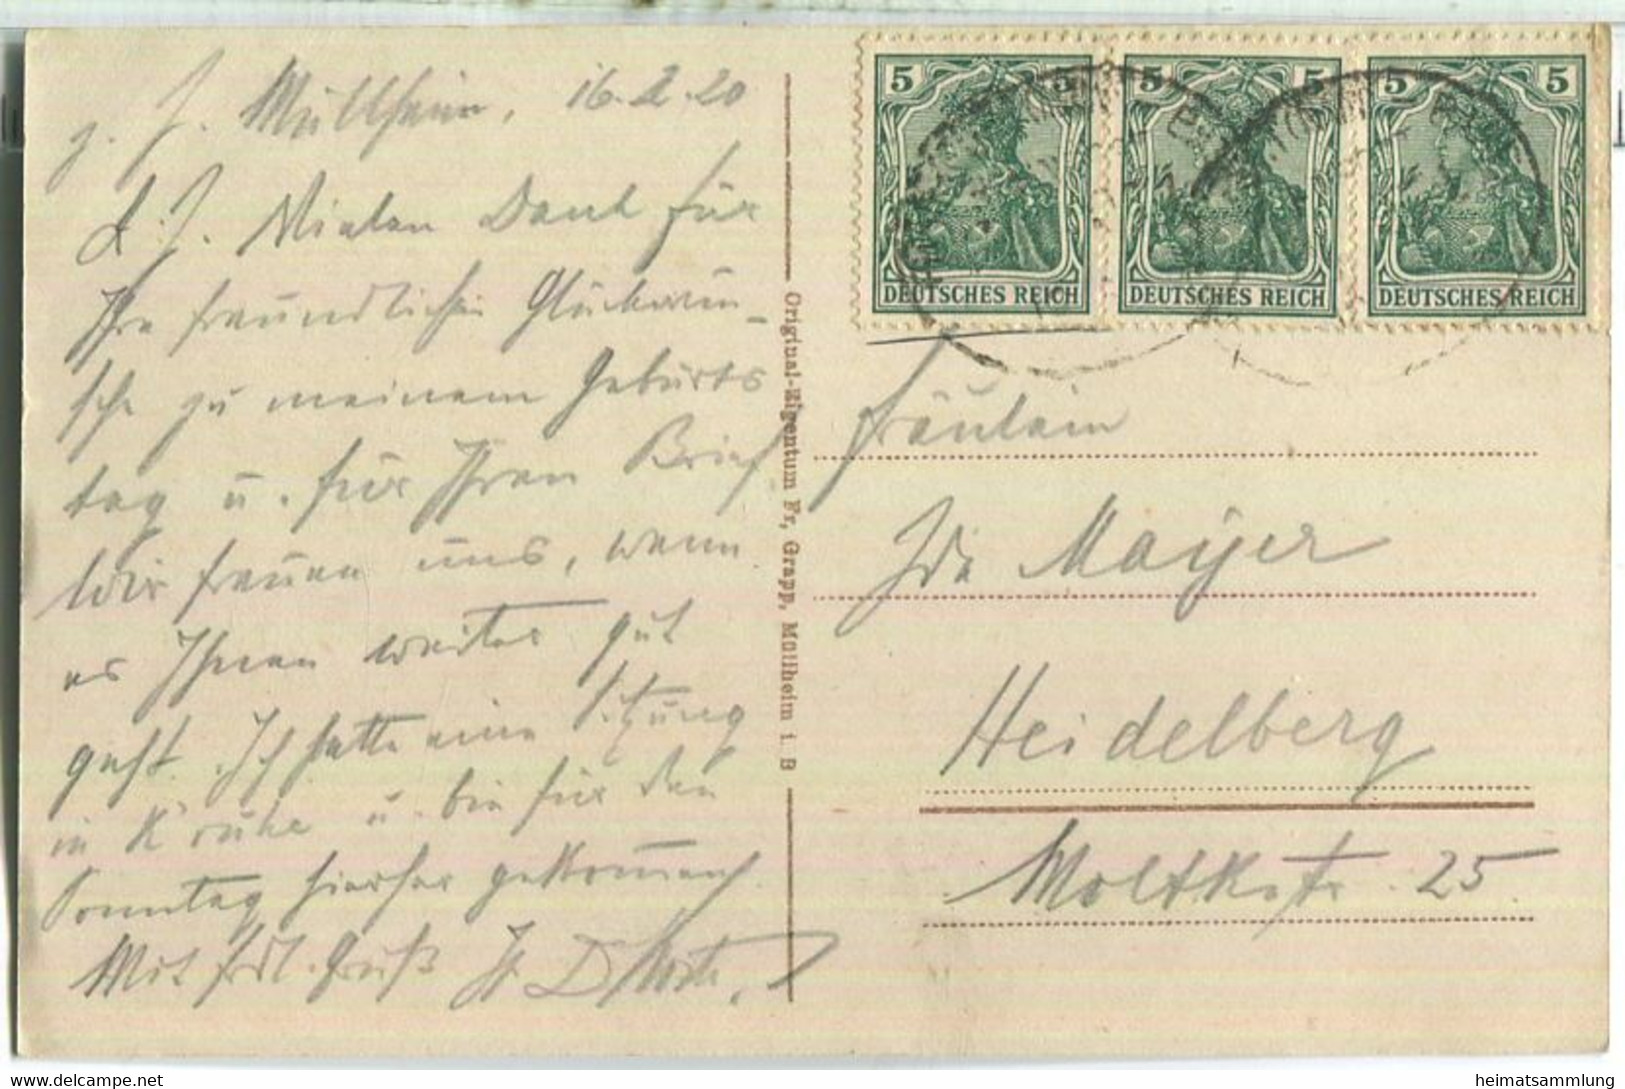 z. Z. Müllheim, 16.2.20
L. J. Vielen Dank für
Ihre freundlichen Glückwün-
sche zu meinem Geburts
tag u. für Ihren Brief
Wir freuen uns, wenn
es Ihnen weiter gut
geht. Ich hatte eine Sitzung
in K'ruhe u. bin für den
Sonntag hierher gekommen
Mit frdl. Gruß Ihr
Original-Eigentum Fr. Grapp, Müllheim i. B
5 5 5 5 5 5
DEUTSCHES REICH DEUTSCHES REICH DEUTSCHES REICH
Fräulein
Ida Mayer
Heidelberg
Moltkestr. 25
www.delcampe.net
heimatsammlung